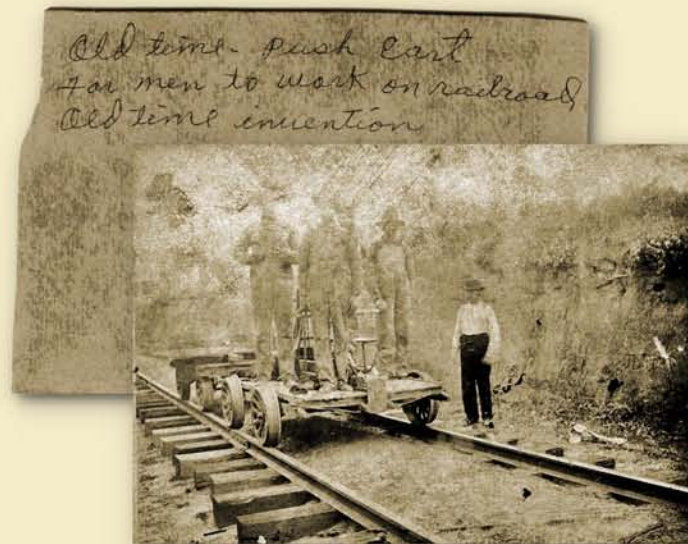 Old time push cart
For men to work on railroad
Old time invention